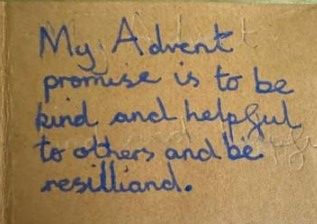 My Advent
promise is to be
kind and helpful
to others and be
resilliand.